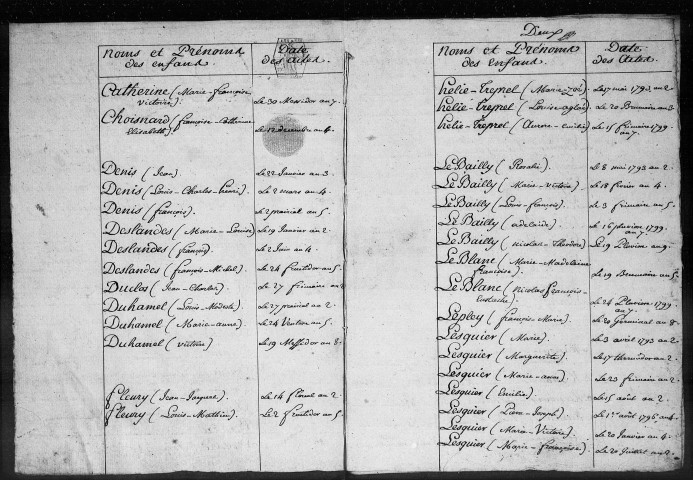 Noms et Prénoms des enfans
Date des actes
Catherine (Marie-françoise
victoire). Le 30 Messidor an 7.
Choisnard (françoise-catherine
Elisabeth). Le 12 decembre an 4.
Denis (Jean) Le 22 Janvier an 3.
Denis (Louis-Charles-henri). Le 2 mars an 4.
Denis (françois). Le 2 prairial an 5.
Deslandes (Marie-Louise) Le 19 Janvier an 2.
Deslandes (françois) Le 2 Juin an 4.
Deslandes (françois-Michel). Le 24 fructidor an 5.
Duclos (Jean-Charles) Le 27 frimaire an
Duhamel (Louis-Modeste). Le 27 prairial an 2.
Duhamel (Marie-anne) Le 24 Ventose an 5.
Duhamel (victoire) Le 19 Messidor an 8.
fleury (Jean-Jacques) Le 14 floreal an 2.
fleury (Louis-Mathieu). Le 2 fructidor an 5.
Deux
Noms et Prénoms des enfans.
Date des actes
hélie-Treprel (Marie- Le 17 mai 1793 an 2.
hélie-Treprel (Louise-aglaé) Le 20 Brumaire an 3.
hélie-Treprel (Aurore-Emilie) Le 15 frimaire 1799
an 7.
Le Bailly (Rosalie). Le 8 mai 1793 an 2
Le Bailly (Marie-victoire). Le 18 fevrier an 4.
Le Bailly (Louis-françois). Le 3 frimaire an 5.
Le Bailly (adelaide) Le 16 1799
an 7.
Le Bailly (Nicolas-Theodore) Le 19 Pluviose an 9.
Le Blanc (Marie-Madelaine
françoise). Le 19 Brumaire an 5.
Le Blanc (Nicolas françois-
Eustache) Le 24 Pluviose 1799
an 7.
Lepley (françois Marie). Le 20 Germinal an 8.
Lesquier (Marie) Le 3 avril 1793 an 2
Lesquier (Marguerite) Le 17 thermidor an 2.
Lesquier (Marie-anne) Le 23 frimaire an 2.
Lesquier (Emilie) Le 15 août an 2.
Lesquier (Pierre-Joseph) Le 1er août 1796 an 4.
Lesquier (Marie-Victoire) Le 20 Janvier an 4.
Lesquier (Marie-françoise) Le 20 Juillet an